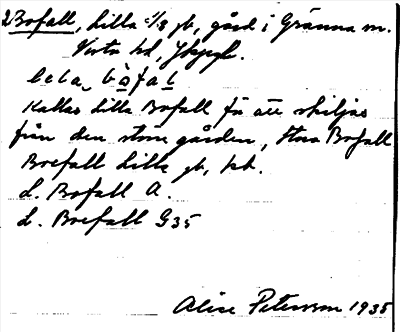 2 Bofall, Lilla 1/8 jb, gård i Gränna sn.
Vista hd, Jkpgl.
lela bo̲fal̲
Kallas Lilla Bofall fö att skiljas
från den stora gården, Stora Bofall
Boefall Lilla jb, kb.
L. Bofall A.
L. Boefall G35
Alice Petersson 1935